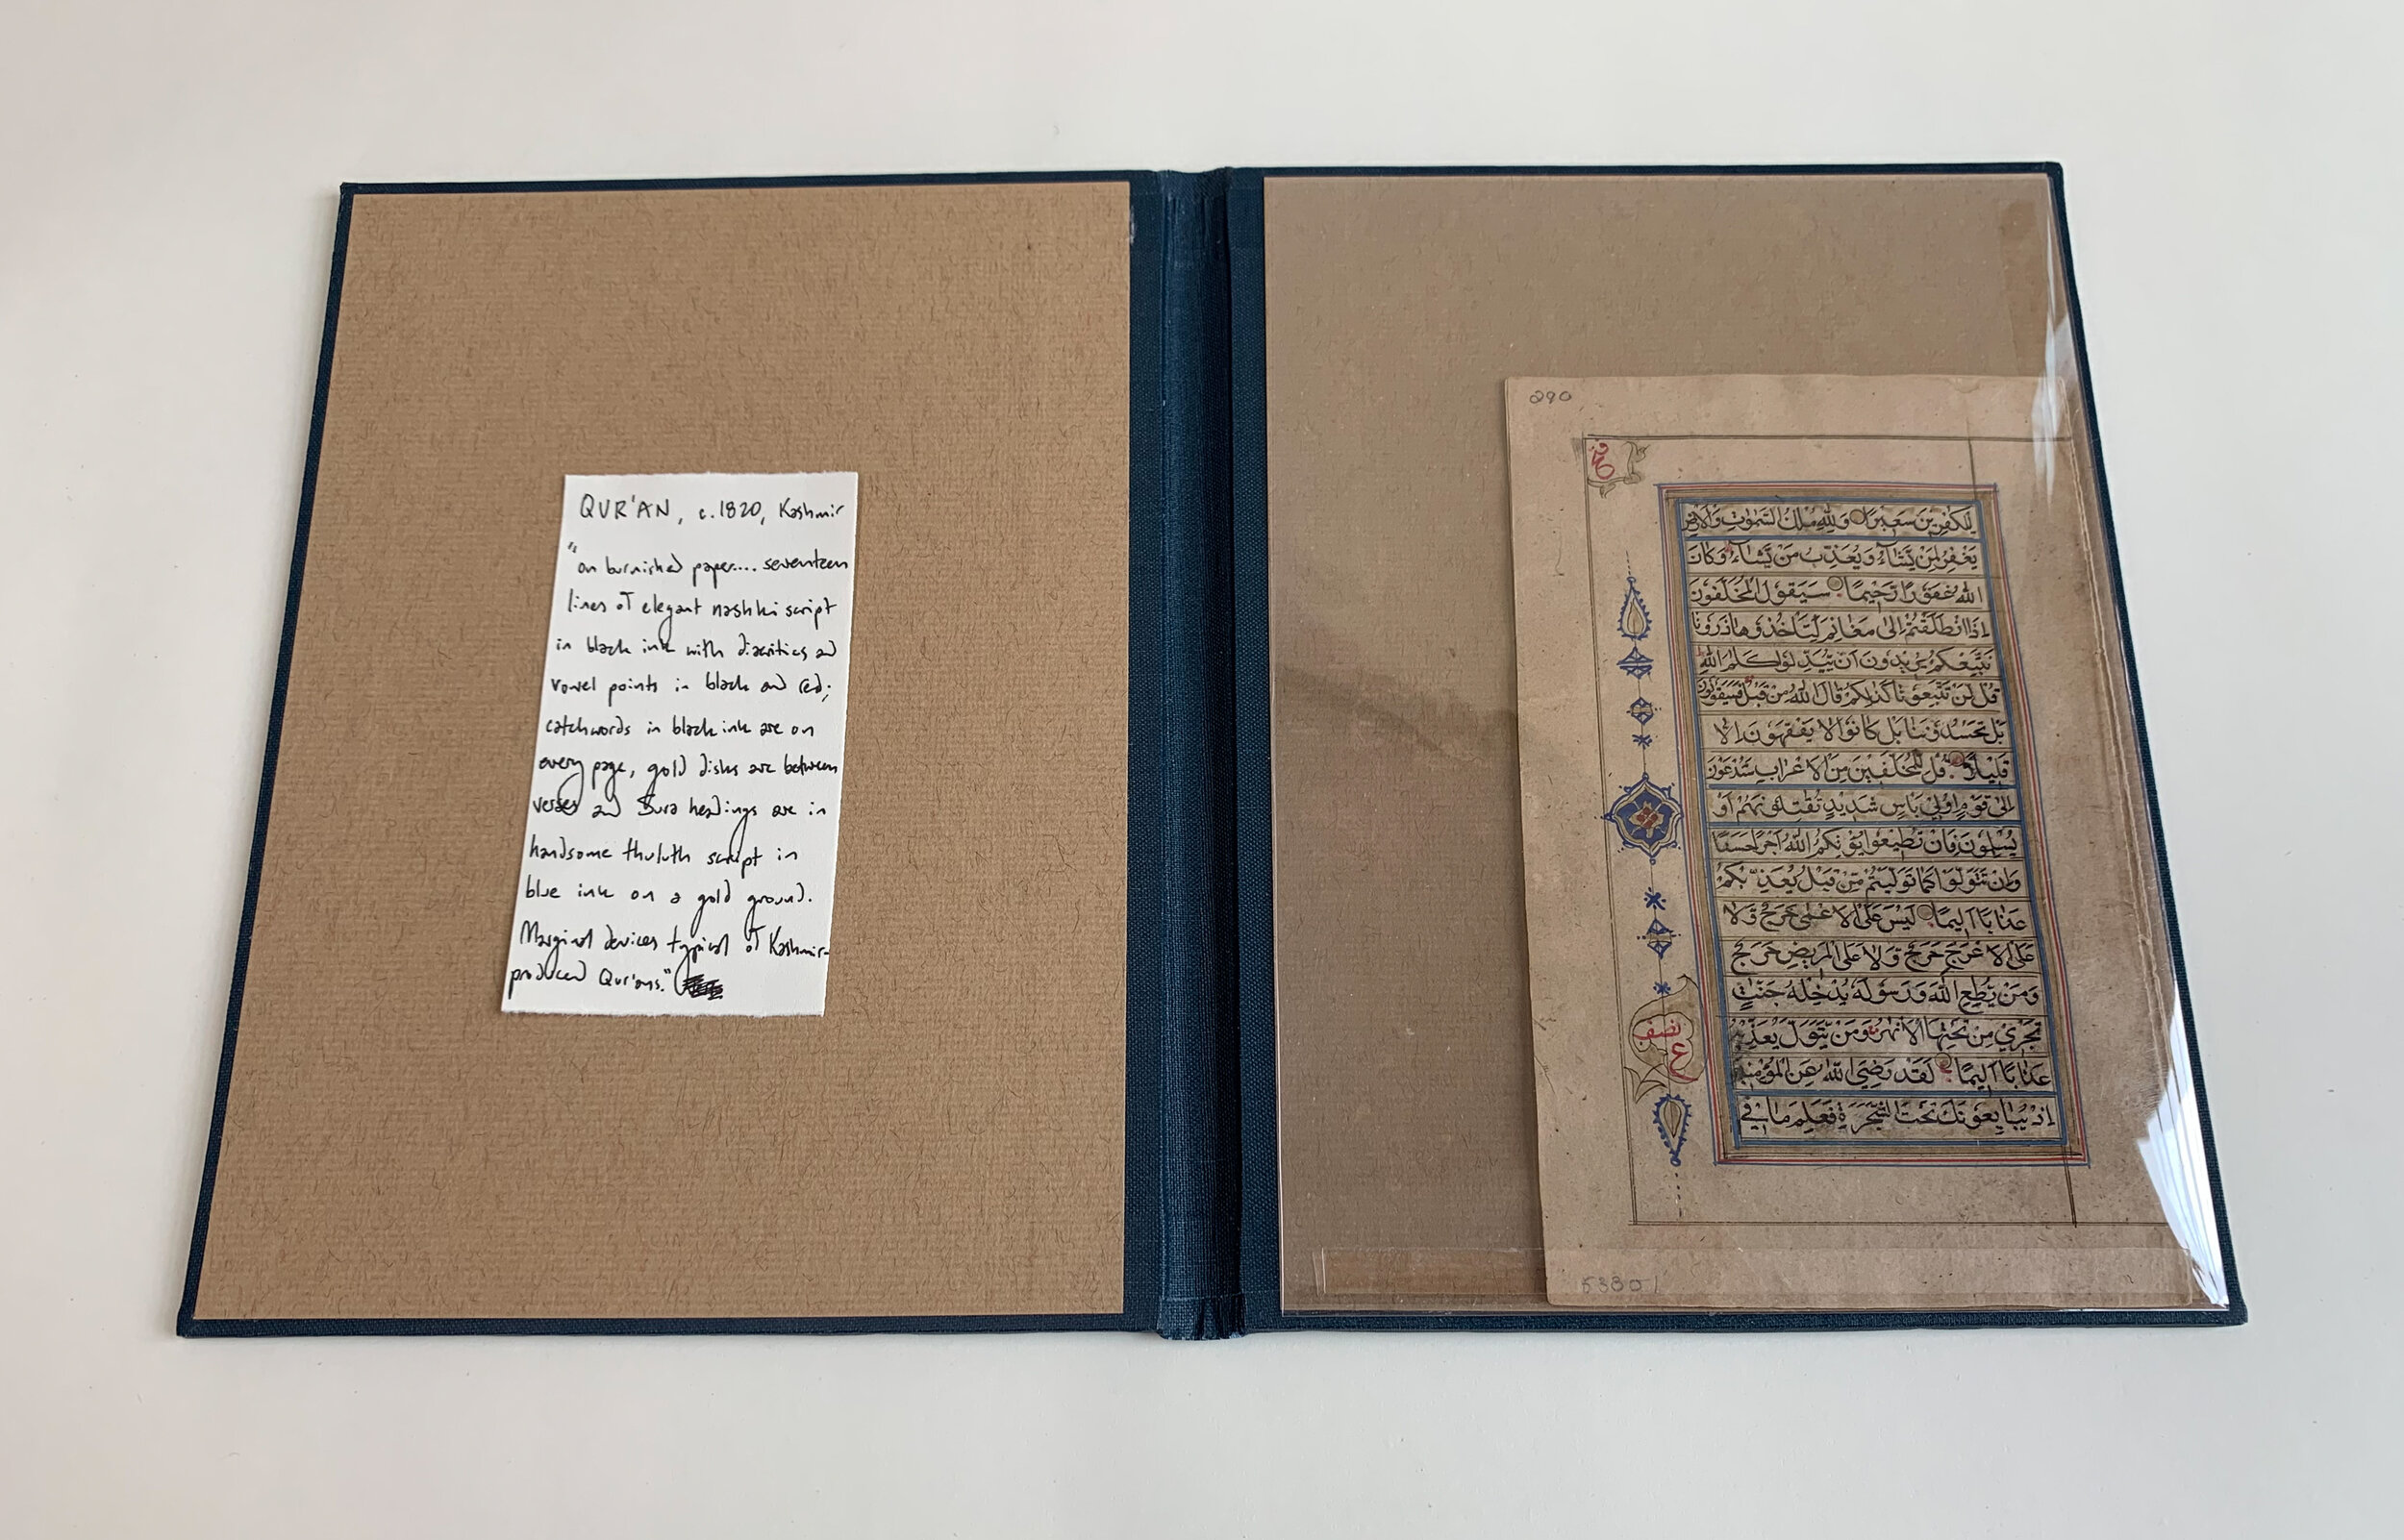 QUR'AN, c.1820, Kashmir
"on burnished paper.... seventeen
lines of elegant nashki script
in black ink with diacritics and
vowel points in black and red;
catchwords in black ink are on
every page, gold disks are between
verses and Sura headings are in
handsome thuluth script in
blue ink on a gold ground.
Marginal devices typical of Kashmir-
produced Qur'ans."
290
لِلْكٰفِرِيْنَ سَعِيْرًا وَلِلّٰهِ مُلْكُ السَّمٰوٰتِ وَالْاَرْضِ
يَغْفِرُ لِمَنْ يَّشَآءُ وَيُعَذِّبُ مَنْ يَّشَآءُ وَكَانَ
اللّٰهُ غَفُوْرًا رَّحِيْمًا سَيَقُوْلُ الْمُخَلَّفُوْنَ
اِذَا انْطَلَقْتُمْ اِلٰى مَغَانِمَ لِتَاْخُذُوْهَا ذَرُوْنَا
نَتَّبِعْكُمْ يُرِيْدُوْنَ اَنْ يُّبَدِّلُوْا كَلٰمَ اللّٰهِ
قُلْ لَنْ تَتَّبِعُوْنَا كَذٰلِكُمْ قَالَ اللّٰهُ مِنْ قَبْلُ فَسَيَقُوْلُوْنَ
بَلْ تَحْسُدُوْنَنَا بَلْ كَانُوْا لَا يَفْقَهُوْنَ اِلَّا
قَلِيْلًا قُلْ لِّلْمُخَلَّفِيْنَ مِنَ الْاَعْرَابِ سَتُدْعَوْنَ
اِلٰى قَوْمٍ اُولِيْ بَاْسٍ شَدِيْدٍ تُقَاتِلُوْنَهُمْ اَوْ
يُسْلِمُوْنَ فَاِنْ تُطِيْعُوْا يُؤْتِكُمُ اللّٰهُ اَجْرًا حَسَنًا
وَاِنْ تَتَوَلَّوْا كَمَا تَوَلَّيْتُمْ مِّنْ قَبْلُ يُعَذِّبْكُمْ
عَذَابًا اَلِيْمًا لَيْسَ عَلَى الْاَعْمٰى حَرَجٌ وَّلَا
عَلَى الْاَعْرَجِ حَرَجٌ وَّلَا عَلَى الْمَرِيْضِ حَرَجٌ
وَمَنْ يُّطِعِ اللّٰهَ وَرَسُوْلَهٗ يُدْخِلْهُ جَنّٰتٍ
تَجْرِيْ مِنْ تَحْتِهَا الْاَنْهٰرُ وَمَنْ يَّتَوَلَّ يُعَذِّبْهُ
عَذَابًا اَلِيْمًا لَقَدْ رَضِيَ اللّٰهُ عَنِ الْمُؤْمِنِيْنَ
اِذْ يُبَايِعُوْنَكَ تَحْتَ الشَّجَرَةِ فَعَلِمَ مَا فِيْ
نصف
ع
53801